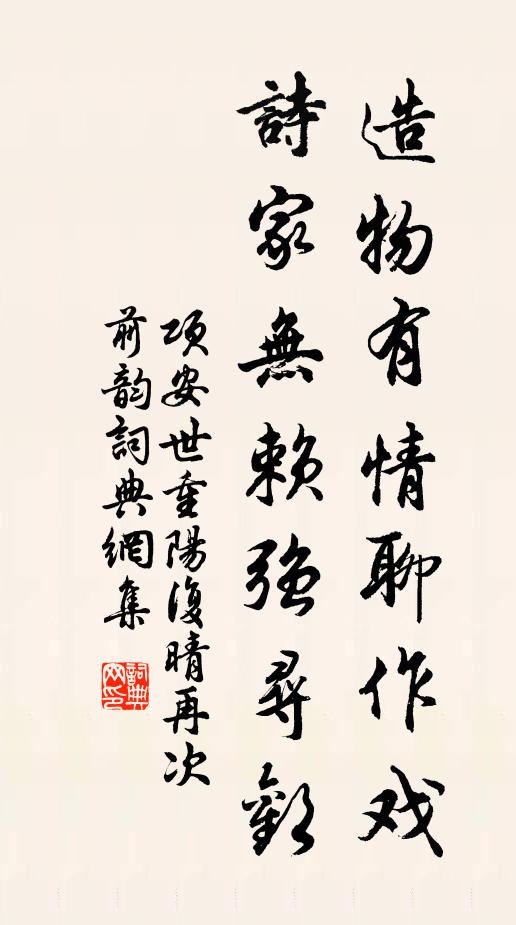 造物有情聊作戏
詩家無賴強尋歡
項安世重陽復晴再次
前韵詞典網集
詞典网印